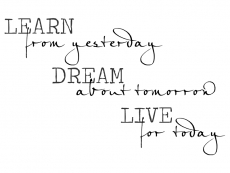 LEARN
from yesterday
DREAM
about tomorrow
LIVE
for today